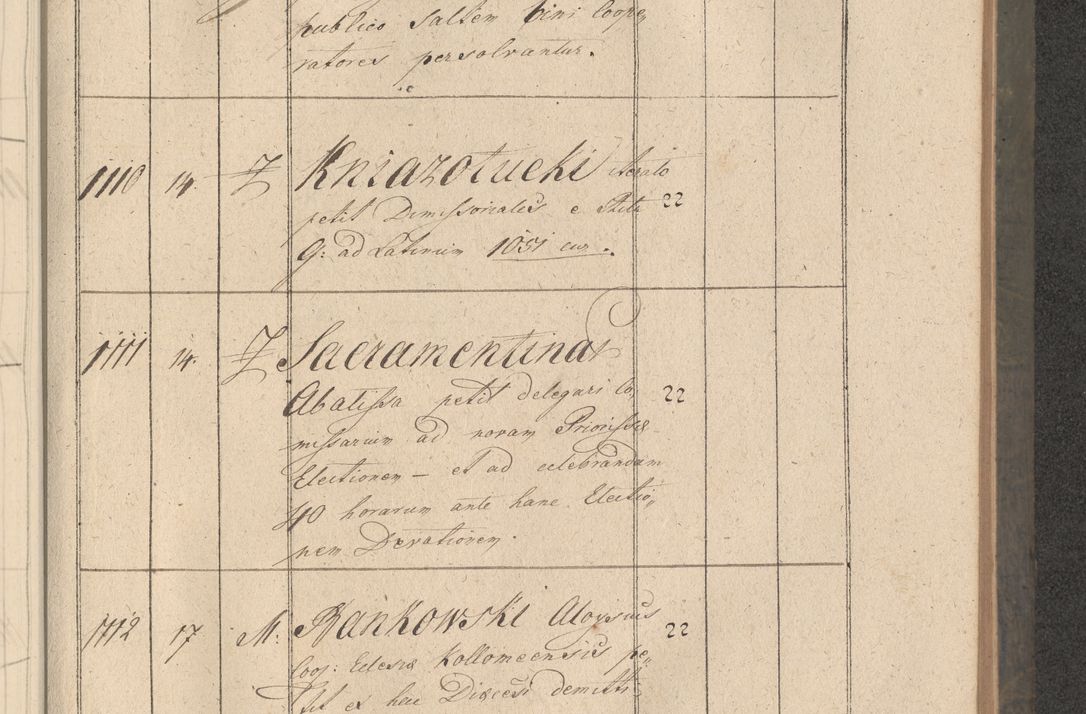 publico saltem bini Coope„
ratores persolvantur.
1110 14. Z Kniazołucki iterato
petit Dimissoriales e Ritu 22
G: ad Latinum 1051 cur.
1111 14. Z Sacramentina
Abatissa petit delegari Co„ 22
missarium ad novam Priorissæ
Electionem – et ad celebrandam
40 horarum ante hanc Electio„
nem Devotionem.
1112 17 M: Bańkowski Aloysius 22
Coop: Eclesiæ Kollomeensis pe„
tit ex hac Diœcesi demitti